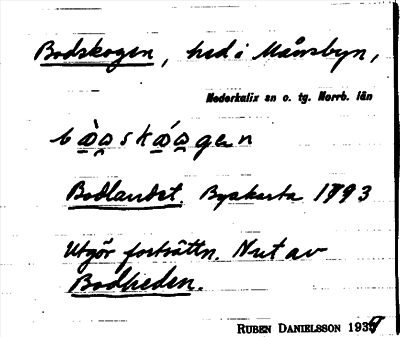 Bodskogen, hed i Månsbyn,
Nederkalix sn o. tg. Norrb. län
Bodlandet. Byakarta 1793
Utgör fortsättn. N ut av
Bodheden.
RUBEN DANIELSSON 1937